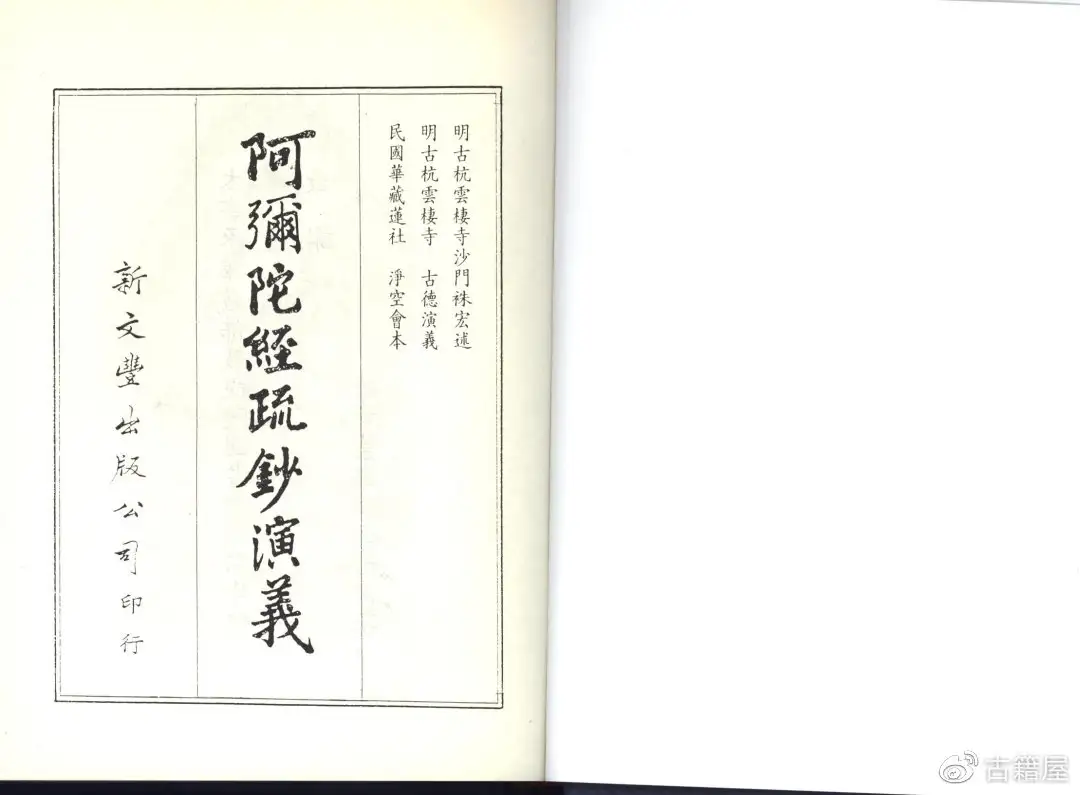 明古杭雲棲寺沙門袾宏述
明古杭雲棲寺 古德演義
民國華藏蓮社 淨空會本
阿彌陀經疏鈔演義
新文豐出版公司印行
古籍屋